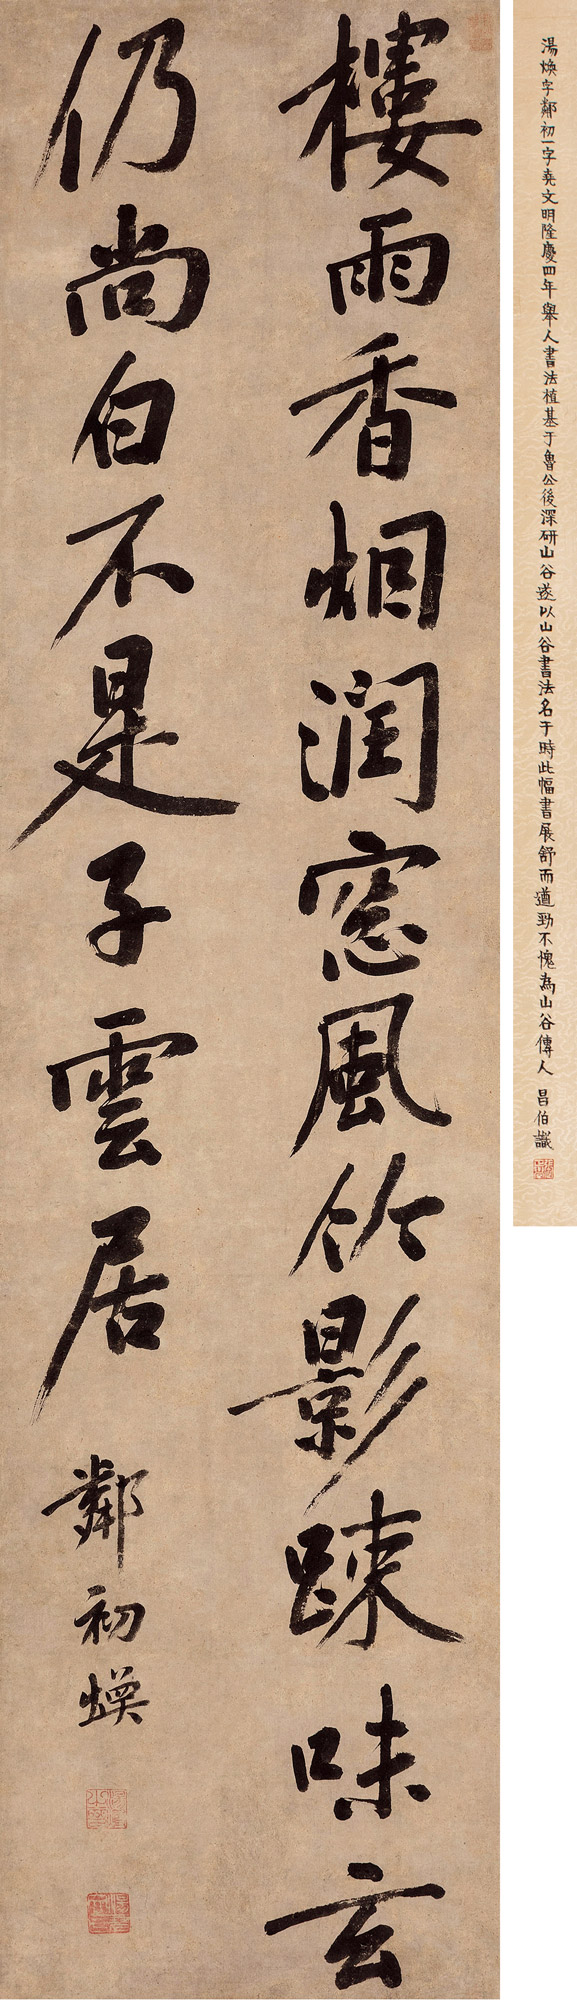 湯煥字鄰初一字堯文明隆慶四年舉人書法植基于魯公後深研山谷遂以山谷書法名于時此幅書展舒而遒勁不愧為山谷傳人 昌伯識
樓雨香烟潤窓風竹影踈味玄
仍尚白不是子雲居 鄰初煥